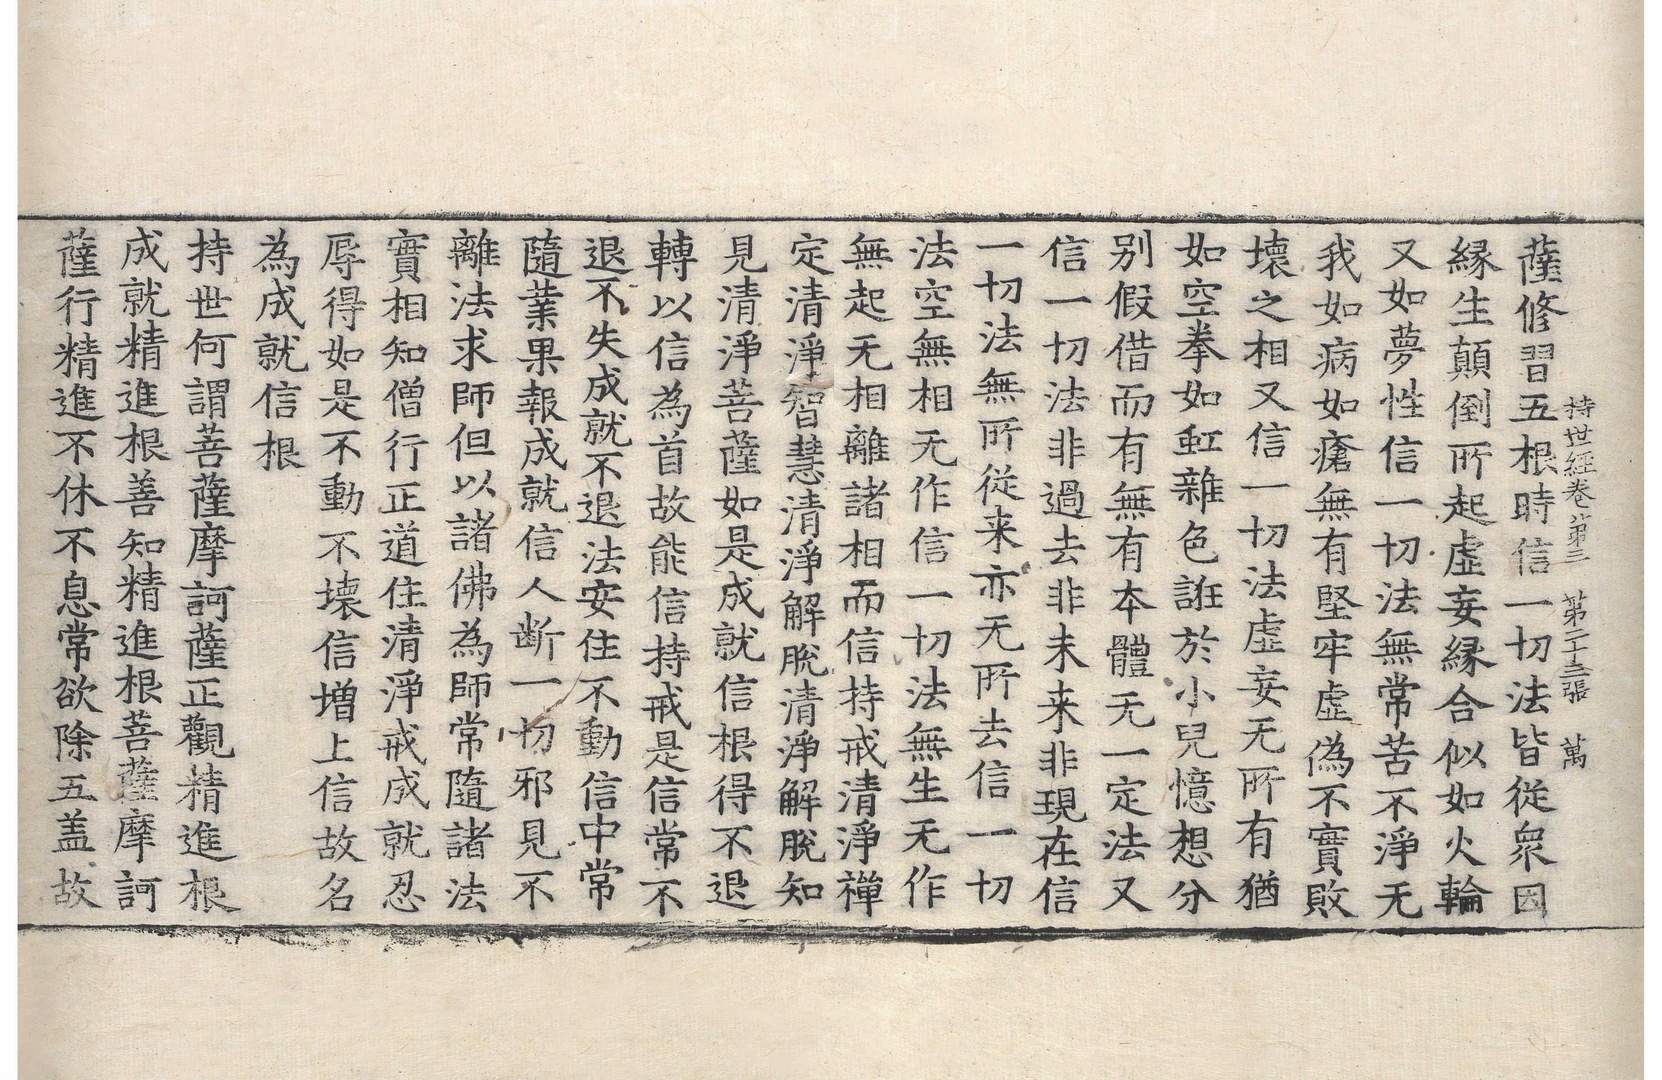 持世經卷第三 第二十三張 萬
薩修習五根時信一切法皆從衆因
縁生顛倒所起虛妄縁合似如火輪
又如夢性信一切法無常苦不淨无
我如病如瘡無有堅牢虛偽不實敗
壞之相又信一切法虛妄无所有猶
如空拳如虹雜色誑於小兒憶想分
别假借而有無有本體无一定法又
信一切法非過去非未来非現在信
一切法無所從来亦无所去信一切
法空無相无作信一切法無生无作
無起无相離諸相而信持戒清淨禪
定清淨智慧清淨解脫清淨解脫知
見清淨菩薩如是成就信根得不退
轉以信為首故能信持戒是信常不
退不失成就不退法安住不動信中常
隨業果報成就信人断一切邪見不
離法求師但以諸佛為師常隨諸法
實相知僧行正道住清淨戒成就忍
辱得如是不動不壞信增上信故名
為成就信根
持世何謂菩薩摩訶薩正觀精進根
成就精進根善知精進根菩薩摩訶
薩行精進不休不息常欲除五盖故